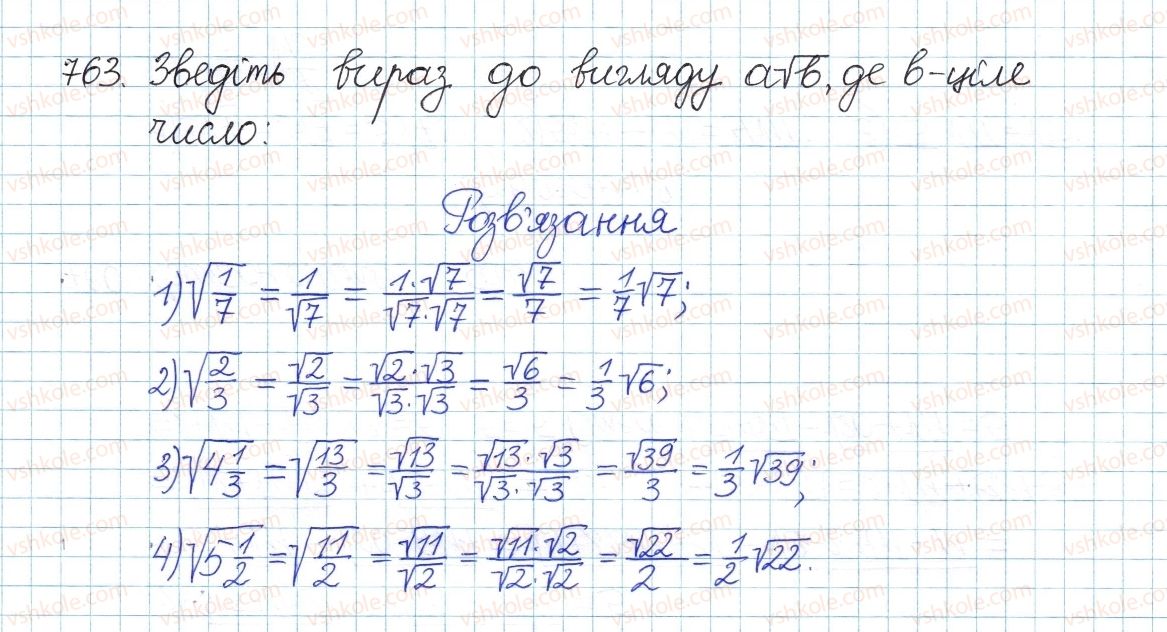 763. Зведіть вираз до вигляду a√b, де b-ціле
число:
Розв'язання
1) √(1/7) = 1/√7 = (1·√7)/(√7·√7) = √7/7 = 1/7 √7;
2) √(2/3) = √2/√3 = (√2·√3)/(√3·√3) = √6/3 = 1/3 √6;
3) √(4 1/3) = √(13/3) = √13/√3 = (√13·√3)/(√3·√3) = √39/3 = 1/3 √39;
4) √(5 1/2) = √(11/2) = √11/√2 = (√11·√2)/(√2·√2) = √22/2 = 1/2 √22.
vshkole.com